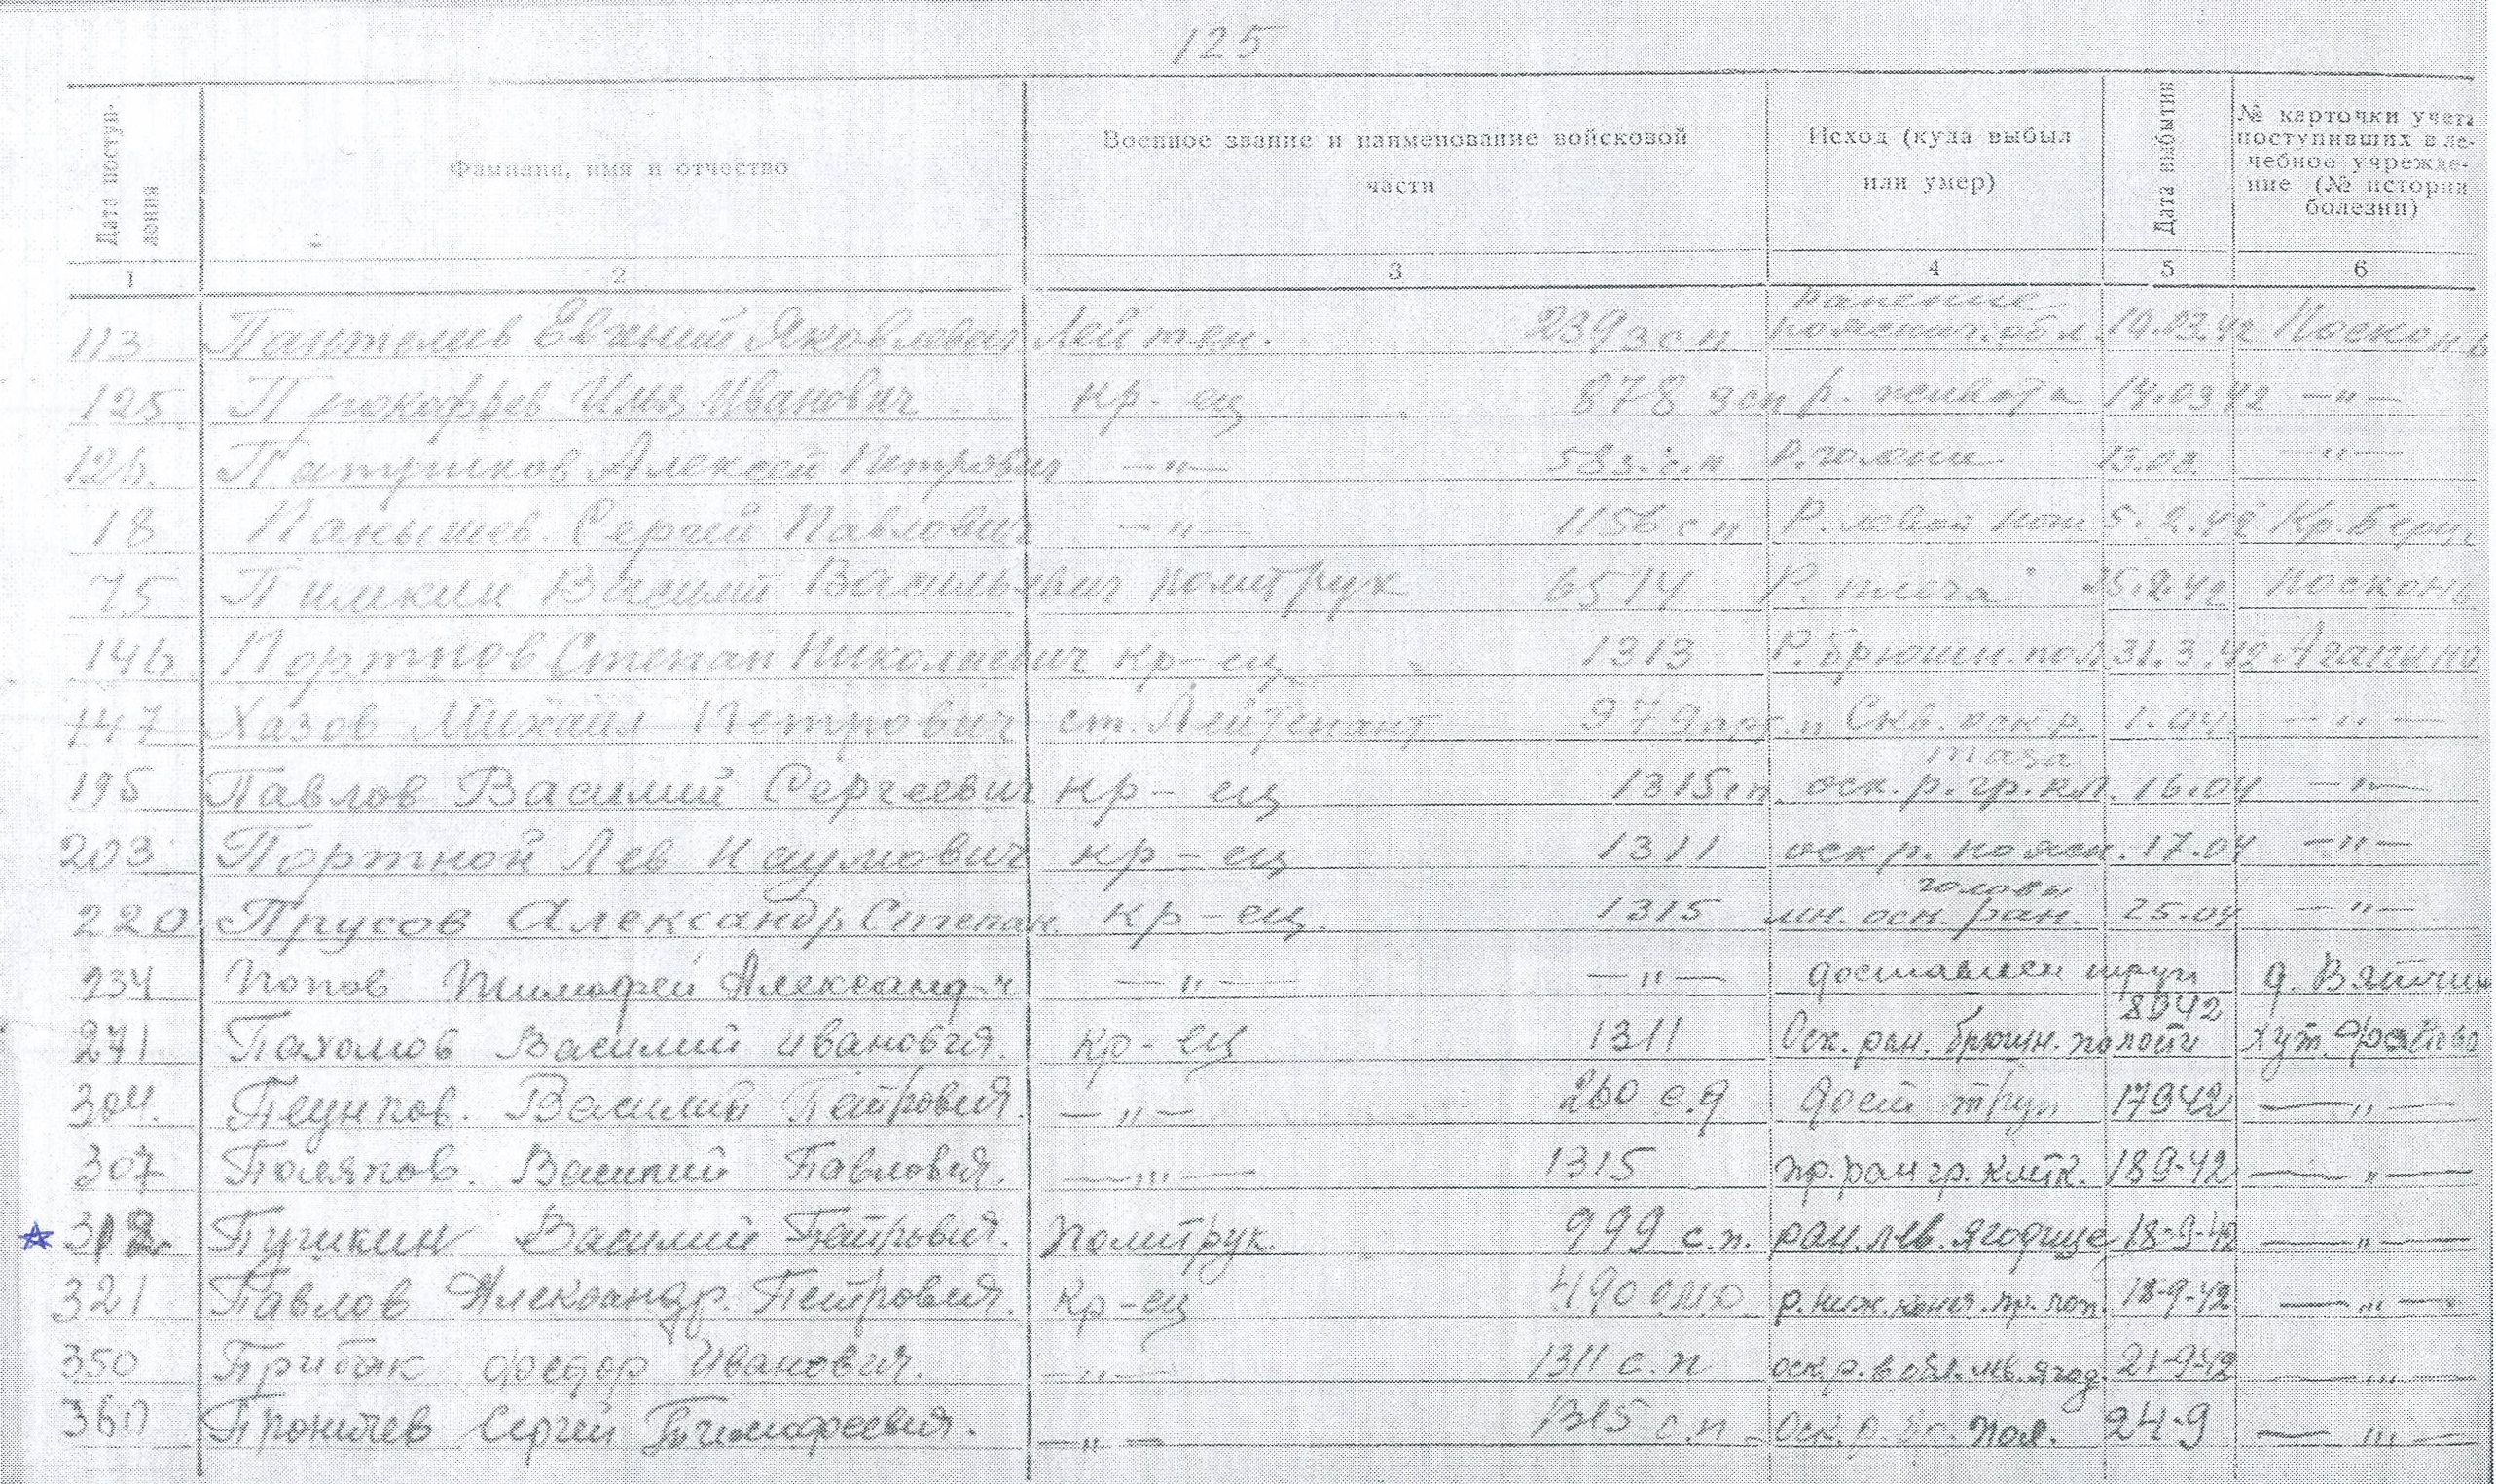 125
Дата поступ-
ления
Фамилия, имя и отчество
Военное звание и наименование войсковой
части
Исход (куда выбыл
или умер)
Дата выбытия
№ карточки учета
поступивших в ле-
чебное учрежде-
ние (№ истории
болезни)
1 2 3 4 5 6
113 Евгений Яковлевич Лейтен. 239 з с п ранение пояснич. обл. 10.03.42 Посконь
125 Прокофьев Илья Иванович кр-ец 878 р. живота 14.03.42 —"—
Алексей Петрович —"— 58 з. с. п Р. голени 13.03. —"—
18 Сергей Павлович —"— 1156 с п Р. левой ноги 5.2.42 Кр. Берц.
75 Василий Васильевич политрук 6514 Р. плеча 25.2.42 посконь
146 Портнов Степан Николаевич кр-ец 1313 Р. брюшн. пол. 31.3.42
147 Хазов Михаил Петрович ст. Лейтенант 979 Скв. оск. р. таза 1.04 —"—
195 Павлов Василий Сергеевич кр-ец 1315 с п. оск. р. гр. кл. 16.04 —"—
203 Портной Лев Наумович кр-ец 1311 оск р. поясн. 17.04 —"—
220 Прусов Александр Степан. кр-ец. 1315 мн. оск. ран. головы 25.04 —"—
234 Попов Тимофей Александ-ч —"— —"— доставлен труп д.
271. Пахомов Василий Иванович. кр-ец 1311 Оск. ран. брюшн. полости 8942 хут.
304. Василий Петрович. —"— 260 с.д дост труп 17942 —"—
307 Поляков. Василий Павлович. —"— 1315 пр. ран гр. клетк. 189-42 —"—
312 Пушкин Василий Петрович. Политрук. 999 с.п. ран. лев. ягодице 18-9-42 —"—
321 Павлов Александр. Петрович. кр-ец 490 р. ниж. конеч. пр. 18-9-42 —"—
350 Федор Иванович. —"— 1311 с.п оск. р. в обл. лев. ягод. 21-9-42 —"—
360 Сергей Тимофеевич. —"— 1315 с.п Оск. р. 24-9 —"—